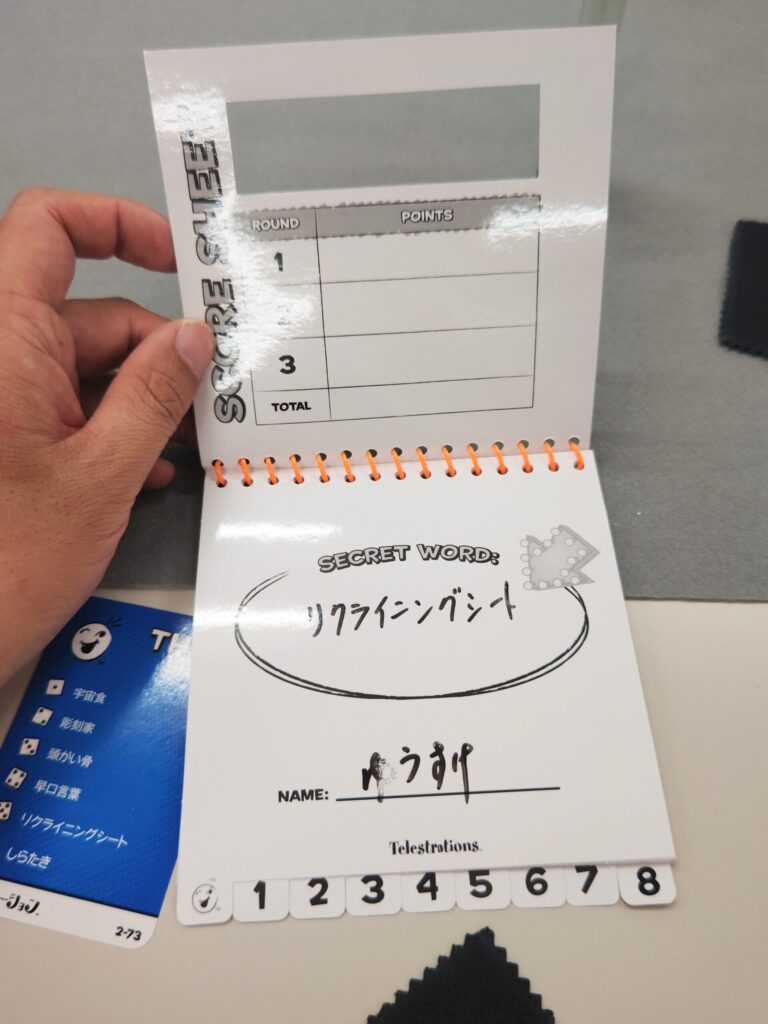 SCORE SHEET
ROUND POINTS
1
2
3
TOTAL
SECRET WORD:
リクライニングシート
NAME: ゆうすけ
Telestrations
1 2 3 4 5 6 7 8
宇宙食
彫刻家
頭がい骨
早口言葉
リクライニングシート
しらたき
2-73